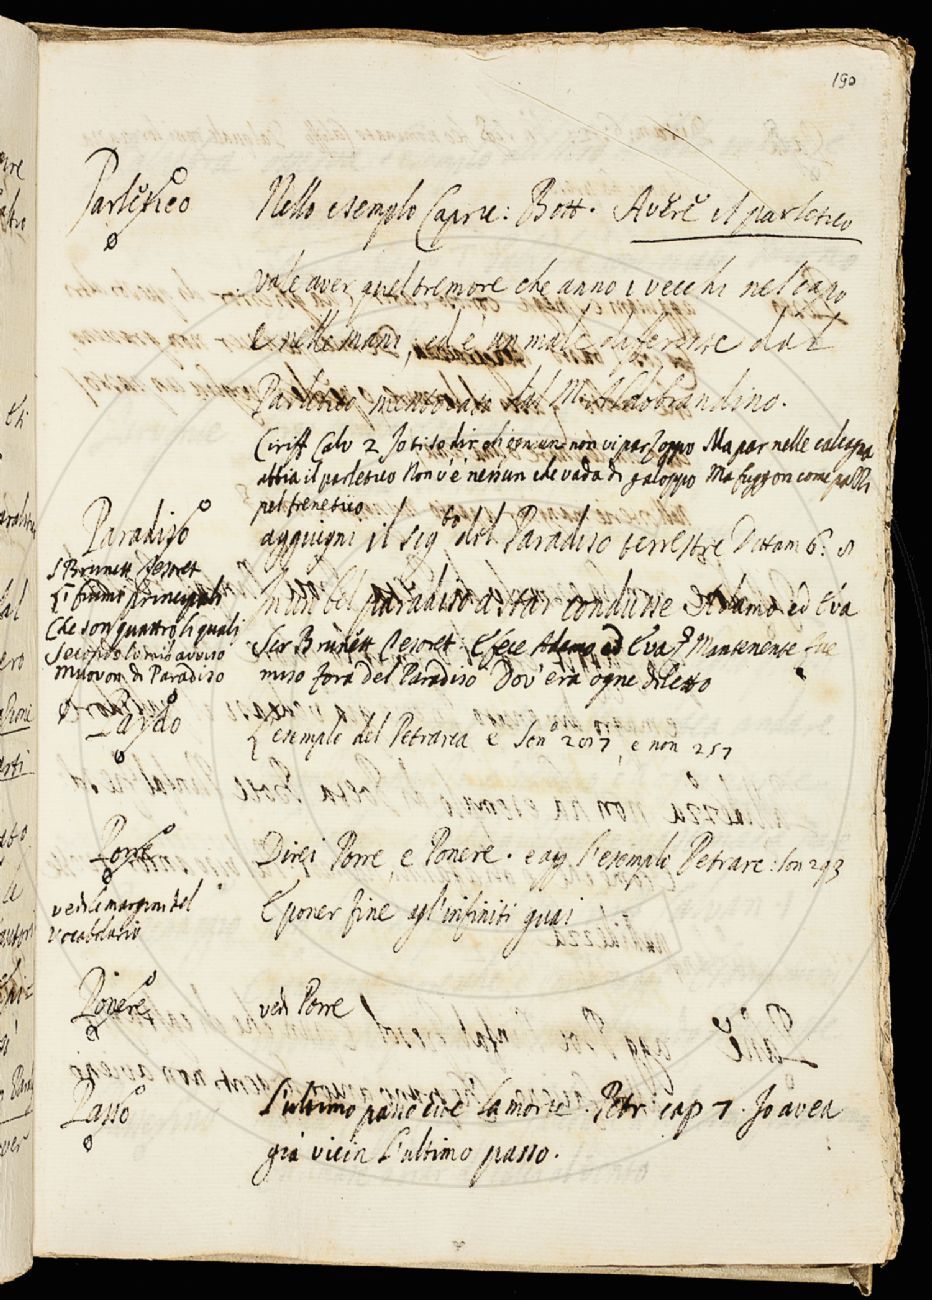 190
Parletico
Nello esempio Capric: Bott. Avere il parletico
vale aver quel tremore che anno i vecchi nel capo
e nelle mani, ed è un male differente dal
Parletico mentovato dal M. Aldobrandino.
Ciriff Calv 2 Io ti so dir non vi par zoppo Ma par nelle calcagna
abbia il parletico Non v'è nessun che vada di galoppo Ma fuggon come
pel frenetico
Paradiso
aggiugni il sig.to del Paradiso terrestre Dittam 6. 8
In un bel paradiso a star condusse Adamo ed Eva
S Brunett Tesoret
Li fiumi principali
Che son quattro li quali
Secondo lo mio avviso
Muovon di Paradiso
Ser Brunett Tesoret E fece Adamo ed Eva Mantenente fue
miso fora del Paradiso Dov'era ogne diletto
Pardo
L'esempio del Petrarca è Son 207, e non 257
Porre
Direi Porre e Ponere. e agg. l'esempio Petrarc: son 293
E poner fine agl'infiniti guai
vedi le margini del
Vocabolario
Ponere
vedi Porre
Passo
L'ultimo passo cioè la morte. Petr cap 7. Io avea
già vicin l'ultimo passo.